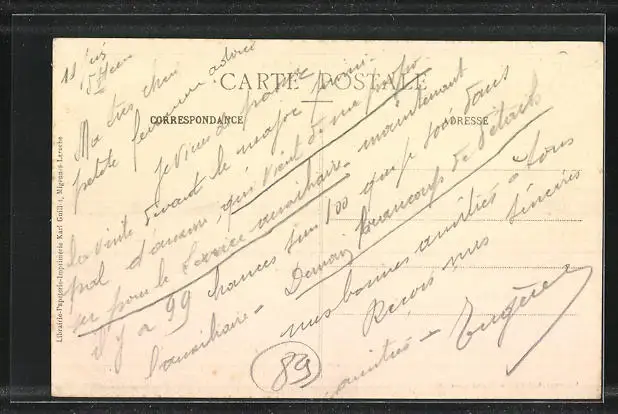 CARTE POSTALE
CORRESPONDANCE
ADRESSE
Librairie-Papeterie-Imprimerie Karl Guillot, Migennes-Laroche
5 Heures
Ma très chère
petite femme adorée
Je viens de passer
la visite devant le major princi-
pal d'armée, qui vient de me propo
ser pour le service auxiliaire. maintenant
il y a 99 chances sur 100 que je sois dans
l'auxiliaire - Demain beaucoup de détails
mes bonnes amitiés à tous
Reçois mes sincères
amitiés -
89